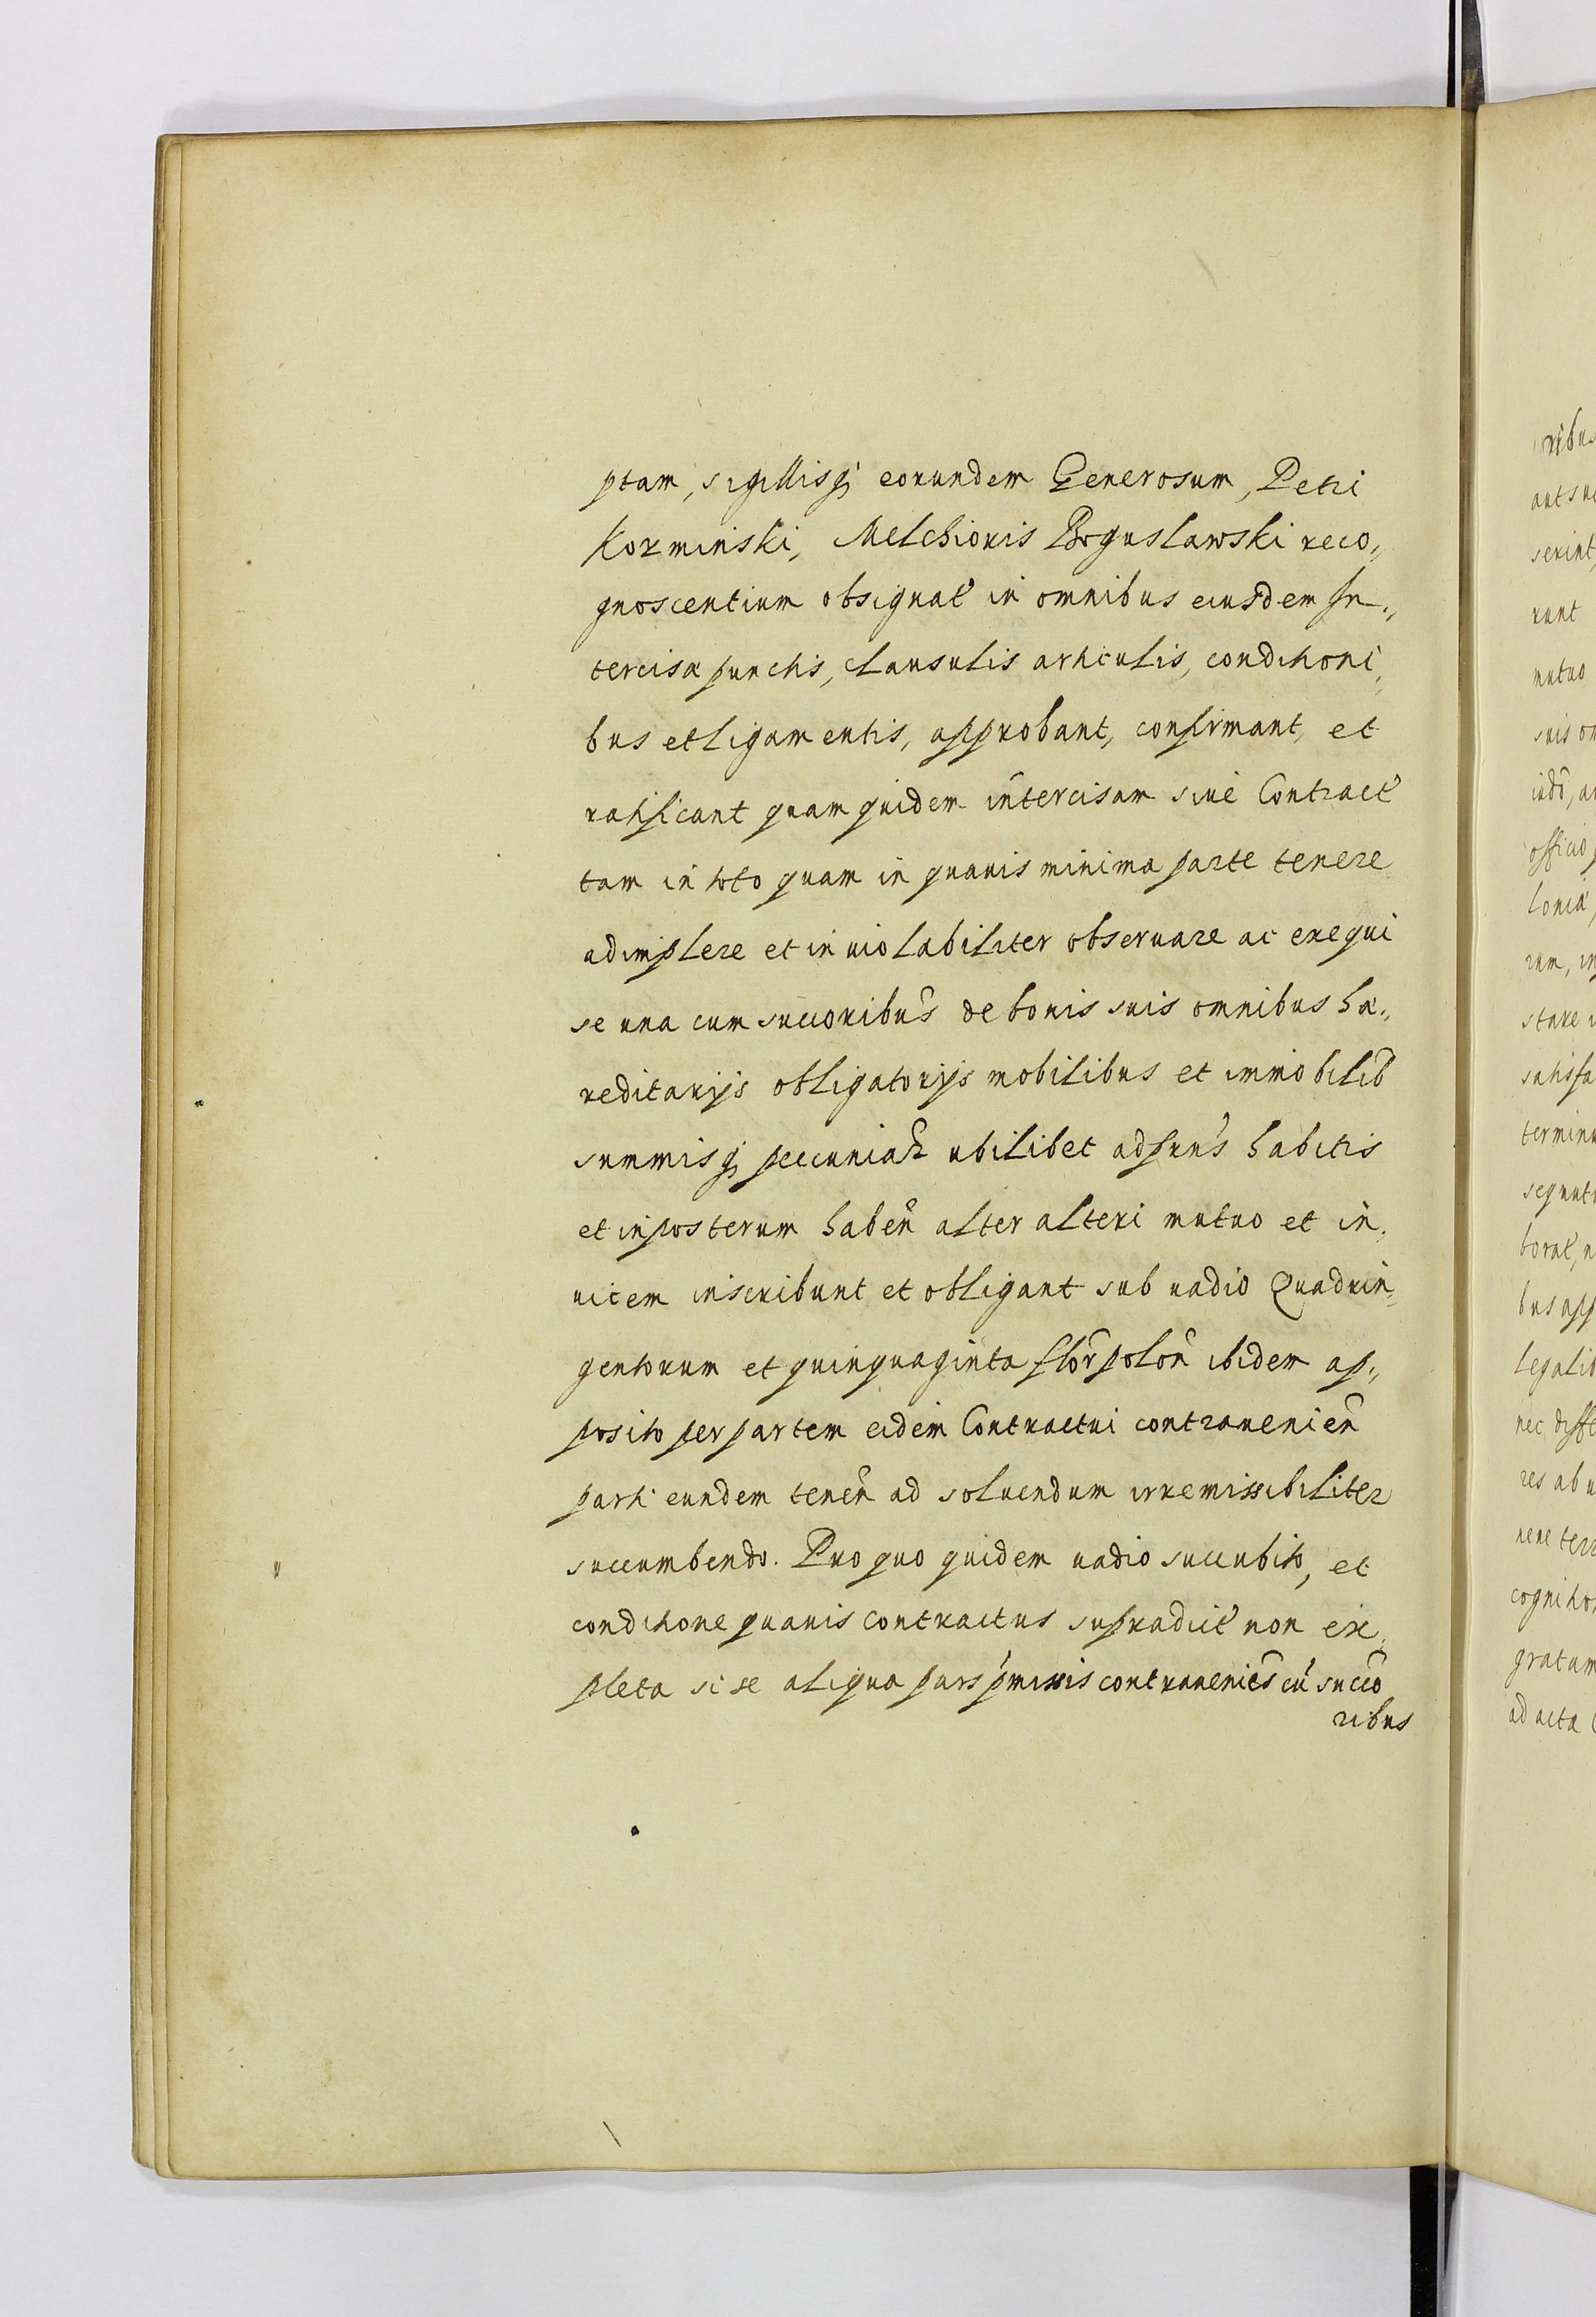 ptam, sigillisq; eorundem Generosum, Petri
Kozminski, Melchioris Boguslawski reco„
gnoscentium obsignat' in omnibus eiusdem In„
tercisæ punctis, clausulis articulis, conditioni„
bus et ligamentis, approbant, confirmant, et
ratificant quam quidem intercisam siue Contract'
tam in toto quam in quauis minima parte tenere
adimplere et inuiolabiliter obseruare ac exequi
se una cum succoribus de bonis suis omnibus hæ„
reditarijs obligatorijs mobilibus et immobilib
summisq; pecuniar ubilibet ad præns habitis
et in posterum haben alter alteri mutuo et in„
uicem inscribunt et obligant sub uadio Quadrin„
gentorum et quinquaginta flor polon ibidem ap„
posito per partem eidem Contractui contrauenien
parti eundem tenen ad soluendum irremissibiliter
succumbendo. Pro quo quidem uadio succubito, et
conditione quauis contractus supradict' non ex„
pleta si se aliqua pars pmissis contraueniens cu succo
ribus
ribus
serint,
runt
mutuo
suis om
officio,
lonia,
rum, in
stare
satisfa
termin
bus app
legalib
nec diffe
res ab u
cognitio
gratam
ad acta